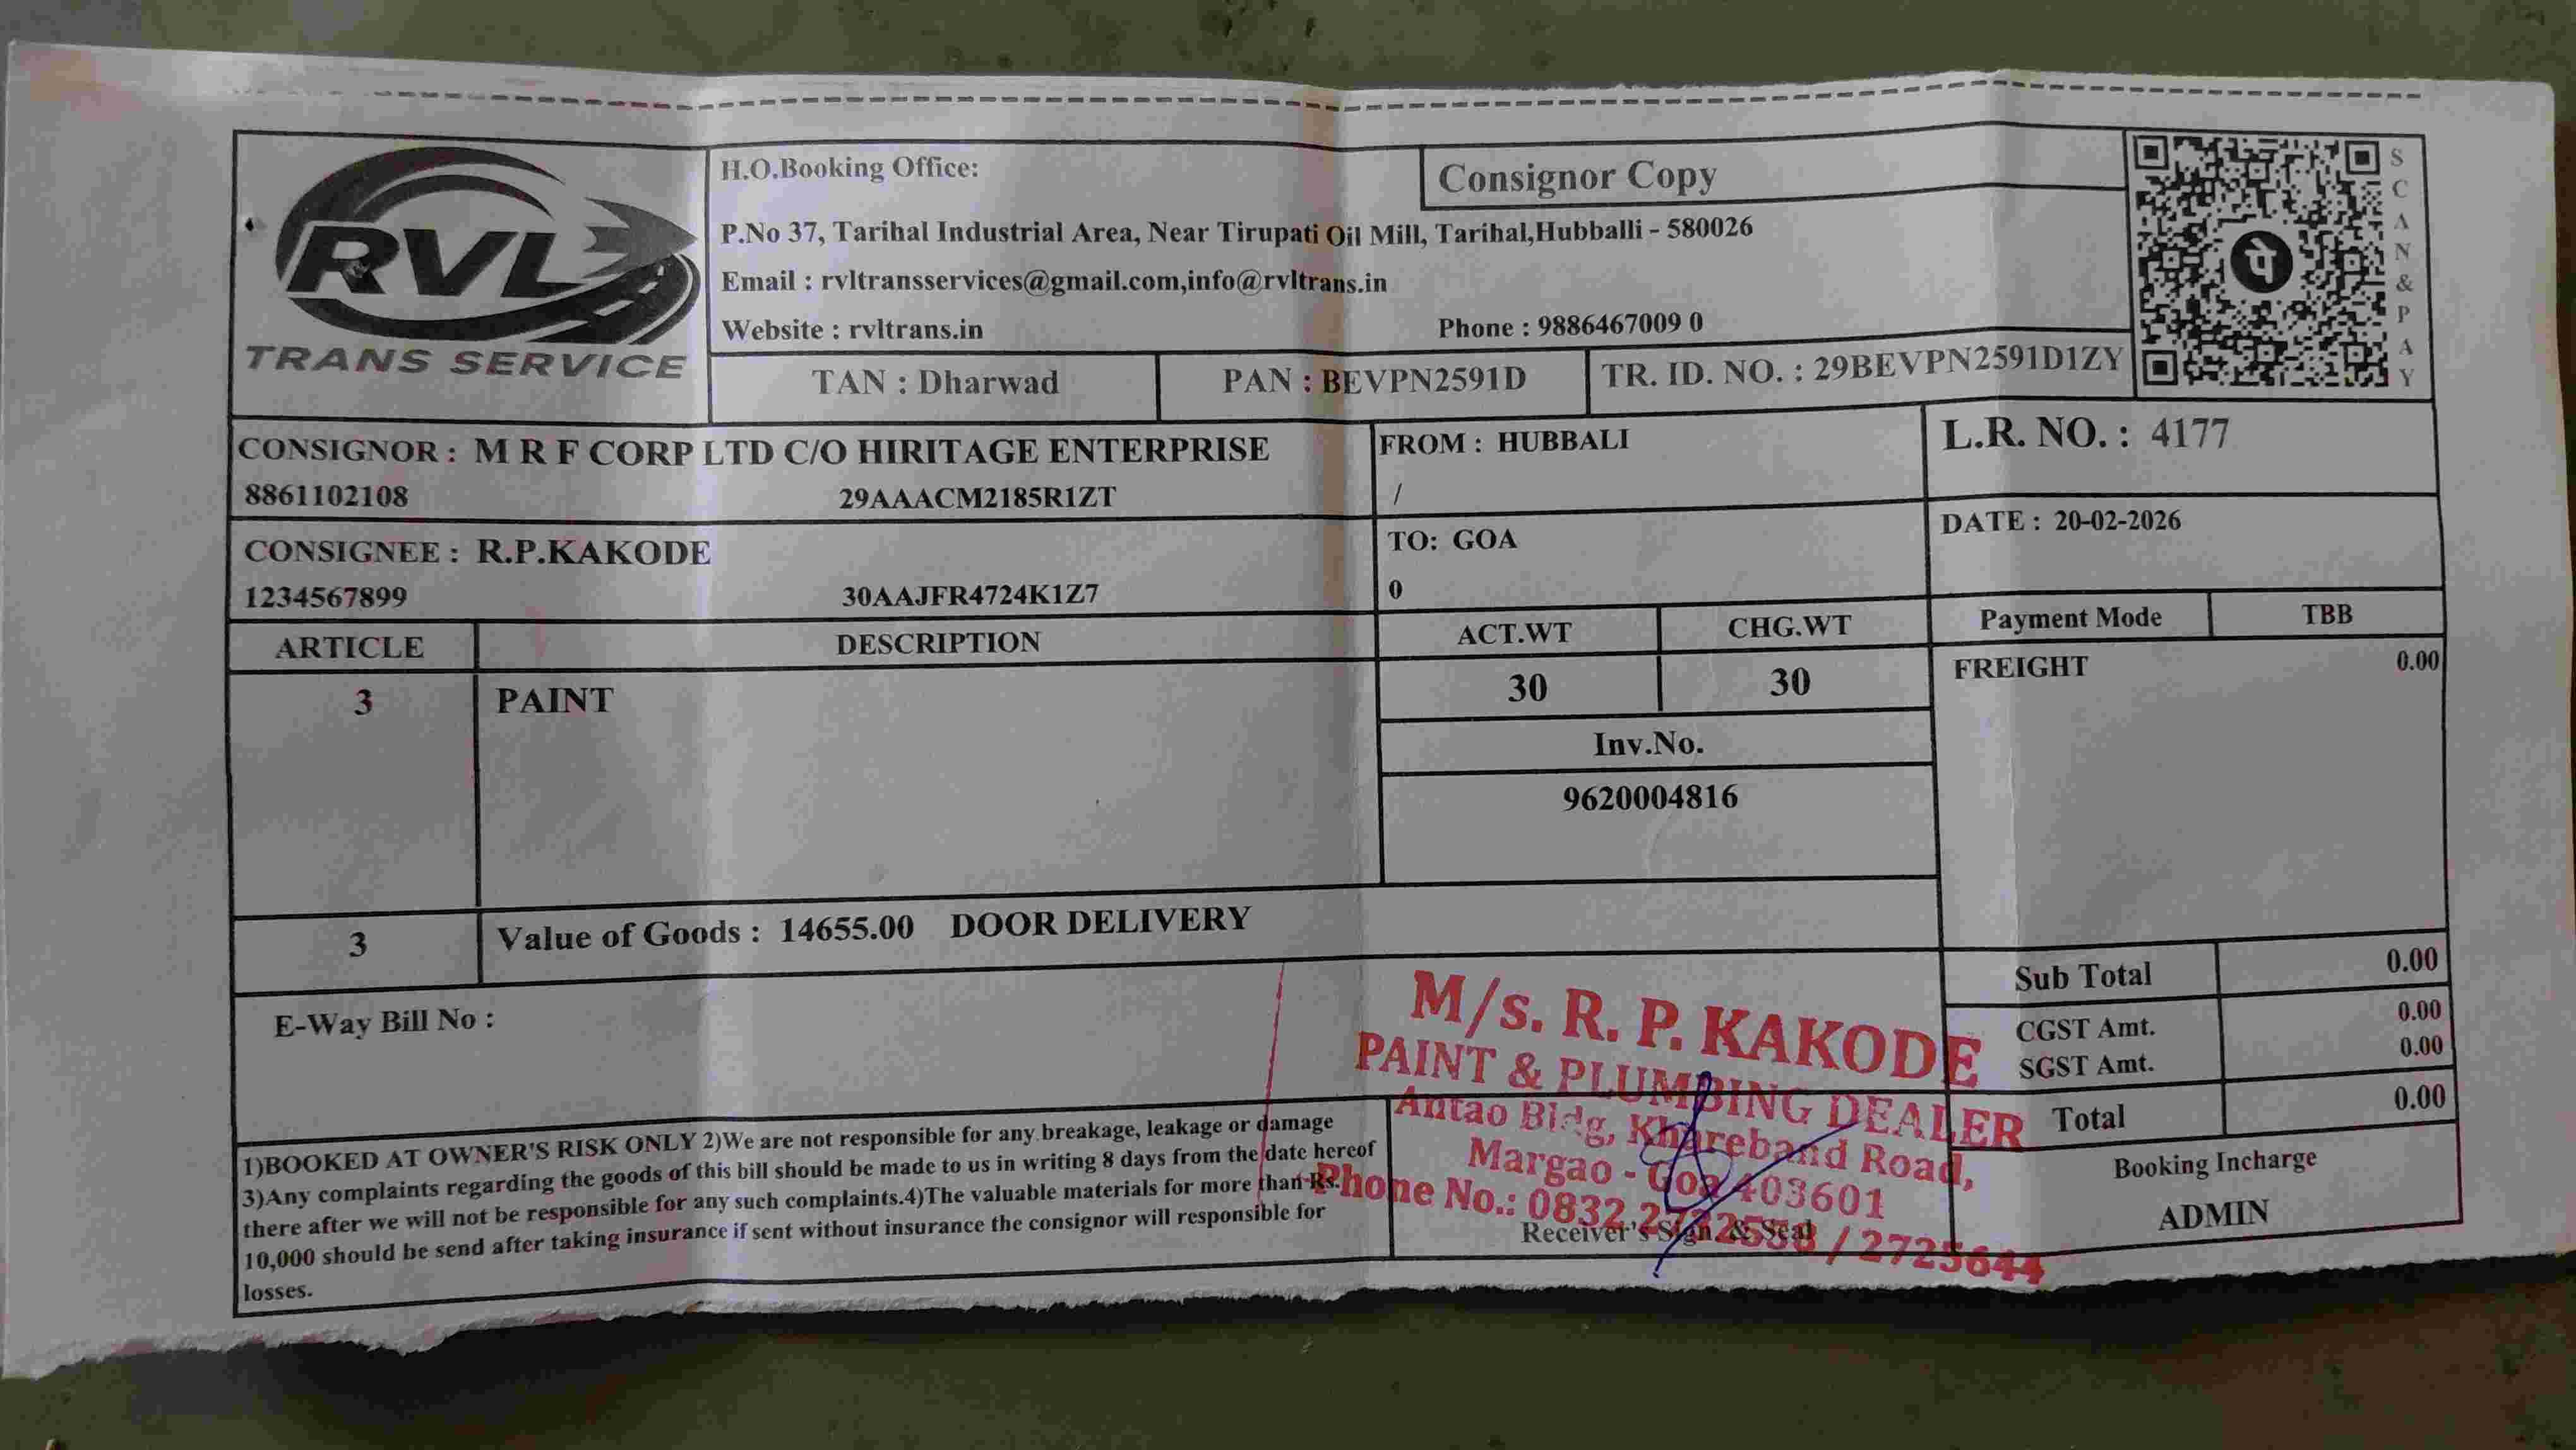 RVL
TRANS SERVICE
H.O.Booking Office:
Consignor Copy
P.No 37, Tarihal Industrial Area, Near Tirupati Oil Mill, Tarihal,Hubballi - 580026
Email : rvltransservices@gmail.com,info@rvltrans.in
Website : rvltrans.in Phone : 9886467009 0
SCAN&PAY
पे
TAN : Dharwad PAN : BEVPN2591D TR. ID. NO. : 29BEVPN2591D1ZY
CONSIGNOR : M R F CORP LTD C/O HIRITAGE ENTERPRISE
8861102108 29AAACM2185R1ZT
FROM : HUBBALI
/
L.R. NO. : 4177
CONSIGNEE : R.P.KAKODE
1234567899 30AAJFR4724K1Z7
TO: GOA
0
DATE : 20-02-2026
ARTICLE DESCRIPTION ACT.WT CHG.WT Payment Mode TBB
3 PAINT 30 30 FREIGHT 0.00
Inv.No.
9620004816
3 Value of Goods : 14655.00 DOOR DELIVERY
Sub Total 0.00
E-Way Bill No :
CGST Amt. 0.00
SGST Amt. 0.00
Total 0.00
M/s. R. P. KAKODE
PAINT & PLUMBING DEALER
Antao Bldg, Khareband Road,
Margao - Goa 403601
Phone No.: 0832 / 2725644
1)BOOKED AT OWNER'S RISK ONLY 2)We are not responsible for any breakage, leakage or damage
3)Any complaints regarding the goods of this bill should be made to us in writing 8 days from the date hereof
there after we will not be responsible for any such complaints.4)The valuable materials for more than Rs.
10,000 should be send after taking insurance if sent without insurance the consignor will responsible for
losses.
Receiver's Sign & Seal
Booking Incharge
ADMIN